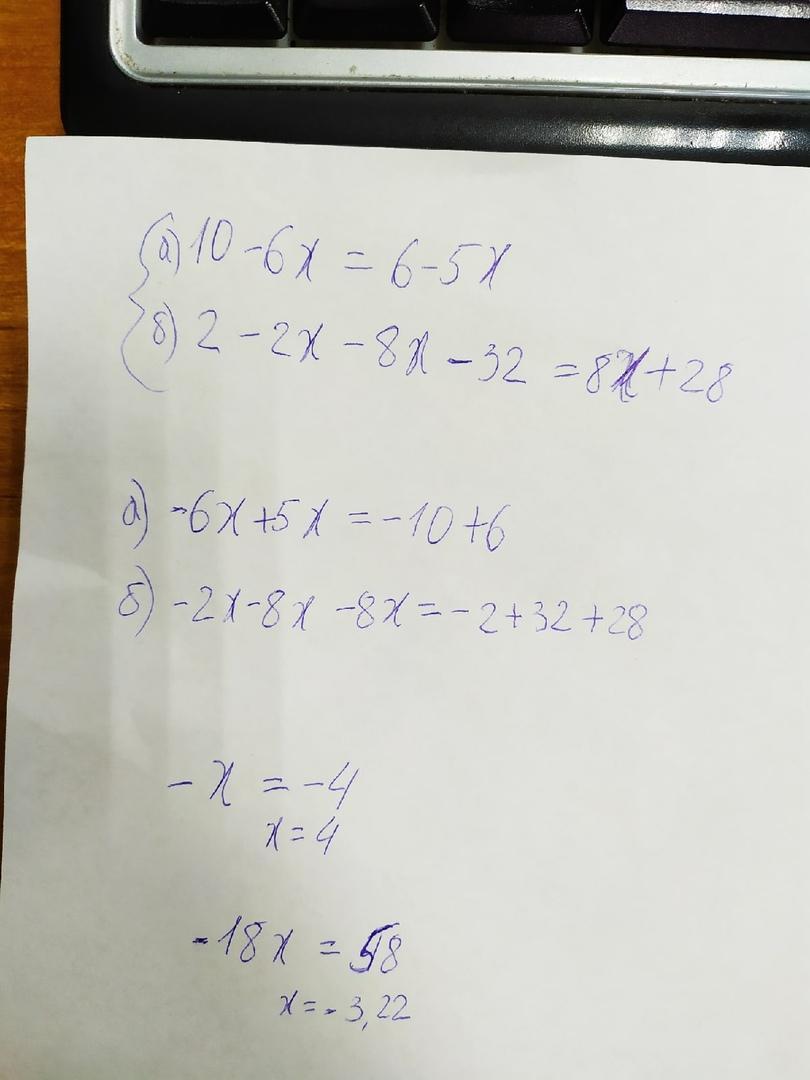 а) 10 - 6x = 6 - 5x
б) 2 - 2x - 8x - 32 = 8x + 28
а) -6x + 5x = -10 + 6
б) -2x - 8x - 8x = -2 + 32 + 28
-x = -4
x = 4
-18x = 58
x = -3,22